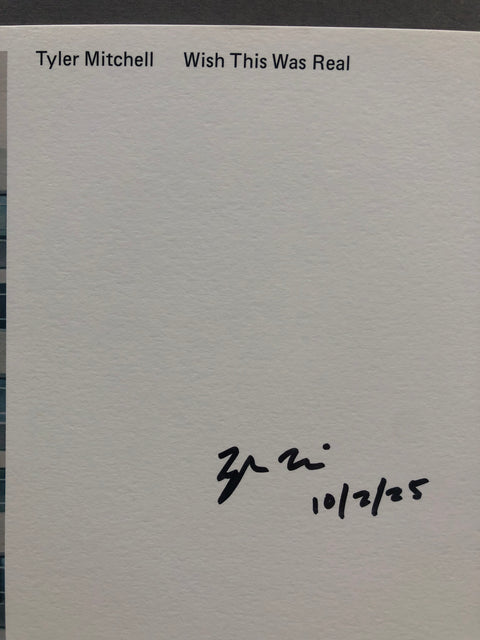 Tyler Mitchell Wish This Was Real
10/2/25